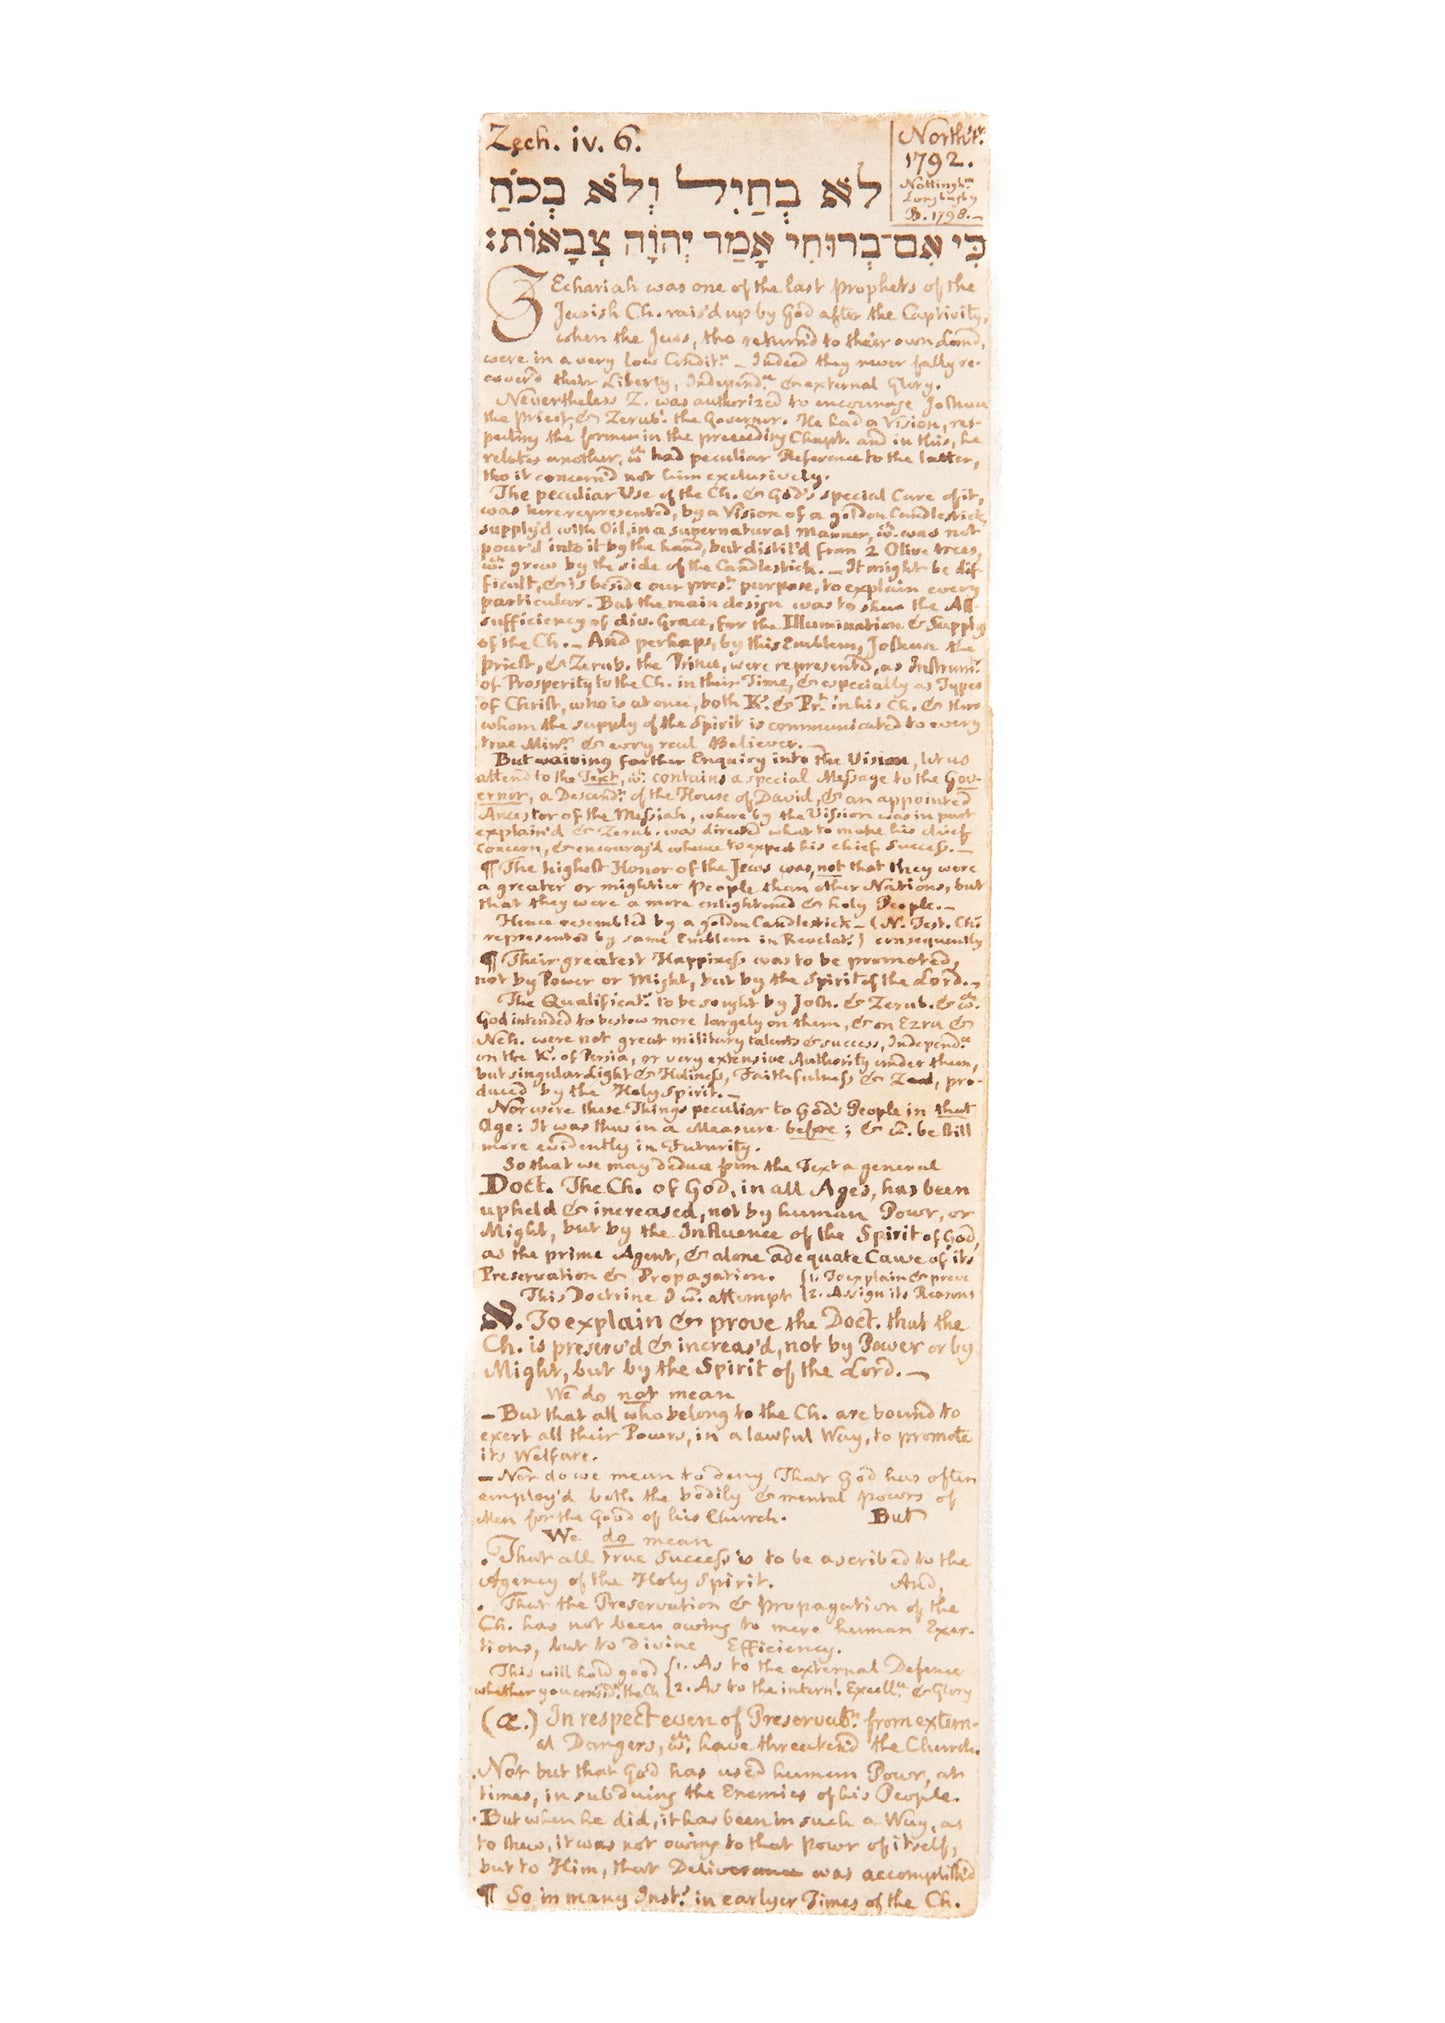 Zech. iv. 6.
North'n.
1792.
Nottingh.m
B. 1798.
לֹא בְחַיִל וְלֹא בְכֹחַ
כִּי אִם־בְּרוּחִי אָמַר יְהוָֹה צְבָאוֹת׃
ZEchariah was one of the last Prophets of the
Jewish Ch. rais'd up by God after the Captivity,
when the Jews, tho return'd to their own Land,
were in a very low Condit.n – Indeed they never fully re-
cover'd their Liberty, Independ.ce & external Glory.
Nevertheless Z. was authorized to encourage Joshua
the Priest, & Zerub.l the Governor. He had a Vision, res-
pecting the former in the preceeding Chapt. and in this, he
relates another, w.ch had peculiar Reference to the latter,
tho it concern'd not him exclusively.
The peculiar Use of the Ch. & God's special Care of it,
was here represented, by a Vision of a golden Candlestick,
supply'd with Oil, in a supernatural Manner, w.ch was not
pour'd into it by the hand, but distil'd from 2 Olive trees,
w.ch grew by the side of the Candlestick. – It might be dif-
ficult, & is beside our pres.t purpose, to explain every
particular. But the main design was to shew the All-
sufficiency of div. Grace, for the Illumination & Supply
of the Ch. – And perhaps, by this Emblem, Joshua the
Priest, & Zerub. the Prince, were represented, as Instrum.ts
of Prosperity to the Ch. in their Time, & especially as Types
of Christ, who is at once, both K. & Pr.t in his Ch. & thro
whom the supply of the Spirit is communicated to every
true Min.r & every real Believer. –
But waiving farther Enquiry into the Vision, let us
attend to the Text, w.ch contains a special Message to the Gov-
ernor, a Descend.t of the House of David, & an appointed
Ancestor of the Messiah, where by the Vission was in part
explain'd & Zerub. was directed what to make his chief
concern, & encourag'd whence to expect his chief success. –
¶ The highest Honor of the Jews was, not that they were
a greater or mightier People than other Nations, but
that they were a more enlightened & holy People. –
Hence resembled by a golden Candlestick – (N. Test. Ch.
represented by same Emblem in Revelat.n) consequently
¶ Their greatest Happiness was to be promoted,
not by Power or Might, but by the Spirit of the Lord. –
The Qualificat.s to be sought by Josh. & Zerub. & w.ch
God intended to bestow more largely on them, & on Ezra &
Neh. were not great military talents & success, Independ.ce
on the K. of Persia, or very extensive Authority under them,
but singular Light & Holiness, Faithfulness & Zeal, pro-
duced by the Holy Spirit. –
Nor were these Things peculiar to God's People in that
Age: It was thus in a Measure before; & w.d be still
more evidently in Futurity.
So that we may deduce from the Text a general
Doct. The Ch. of God, in all Ages, has been
upheld & increased, not by human Powr, or
Might, but by the Influence of the Spirit of God,
as the prime Agent, & alone adequate Cause of its
Preservation & Propagation. {1. To explain & prove
This Doctrine I w.d attempt {2. Assign its Reasons
א. To explain & prove the Doct. that the
Ch. is preserv'd & increas'd, not by Power or by
Might, but by the Spirit of the Lord. –
We do not mean
– But that all who belong to the Ch. are bound to
exert all their Powers, in a lawful Way, to promote
its Welfare.
– Nor do we mean to deny That God has often
employ'd both the bodily & mental powrs of
Men for the Good of his Church. But
We do mean
. That all true Success is to be ascribed to the
Agency of the Holy Spirit. And,
. That the Preservation & Propagation of the
Ch. has not been owing to mere human Exer-
tions, but to Divine Efficiency.
This will hold good {1. As to the external Defence
whether you consid.r the Ch {2. As to the intern.l Excell.ce & Glory
(æ.) In respect even of Preservat.n from extern-
al Dangers, w.ch have threaten'd the Church.
. Not but that God has used human Powr, at
times, in subduing the Enemies of his People.
. But when he did, it has been in such a Way, as
to shew, it was not owing to that powr of itself,
but to Him, that Deliverance was accomplish'd
¶ So in many Inst.s in earlyer Times of the Ch.